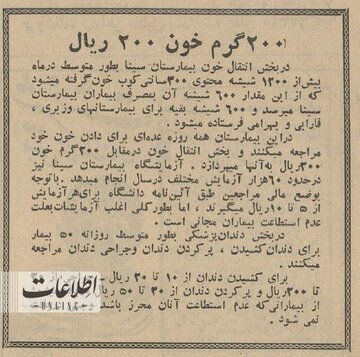 ۲۰۰گرم خون ۲۰۰ ریال
دربخش انتقال خون بیمارستان سینا بطور متوسط درماه
بیش‌از ۱۲۰۰ شیشه محتوی ۳۰۰سانتی‌کوب خون‌گرفته میشود
که از این مقدار ۶۰۰ شیشه آن بمصرف بیماران بیمارستان
سینا میرسد و ۶۰۰ شیشه بقیه برای بیمارستانهای وزیری ،
فارابی و بهرامی فرستاده میشود .
دراین بیمارستان همه روزه عده‌ای برای دادن خون خود
مراجعه میکنند و بخش انتقال خون درمقابل ۲۰۰گرم خون
۲۰۰ریال به‌آنها میپردازد . آزمایشگاه بیمارستان سینا نیز
درحدود ۶۰هزار آزمایش مختلف درسال انجام میدهد .باتوجه
بوضع مالی مراجعین طبق آئین‌نامه دانشگاه برای‌هرآزمایش
از ۵ تا ۱۰ریال میگیرند ، اما بطورکلی اغلب آزمایشات‌بعلت
عدم استطاعت بیماران مجانی است .
دربخش دندان‌پزشکی بطور متوسط روزانه ۵۰ بیمار
برای دندان‌کشیدن ، پرکردن دندان وجراحی دندان مراجعه
میکنند .
برای کشیدن دندان از ۱۰ تا ۲۰ ریال از
تا ۲۰۰ریال و پرکردن دندان از ۳۰ تا ۵۰
از بیمارانی‌که عدم استطاعت آنان محرز باشد
نمی شود .
اطلاعات